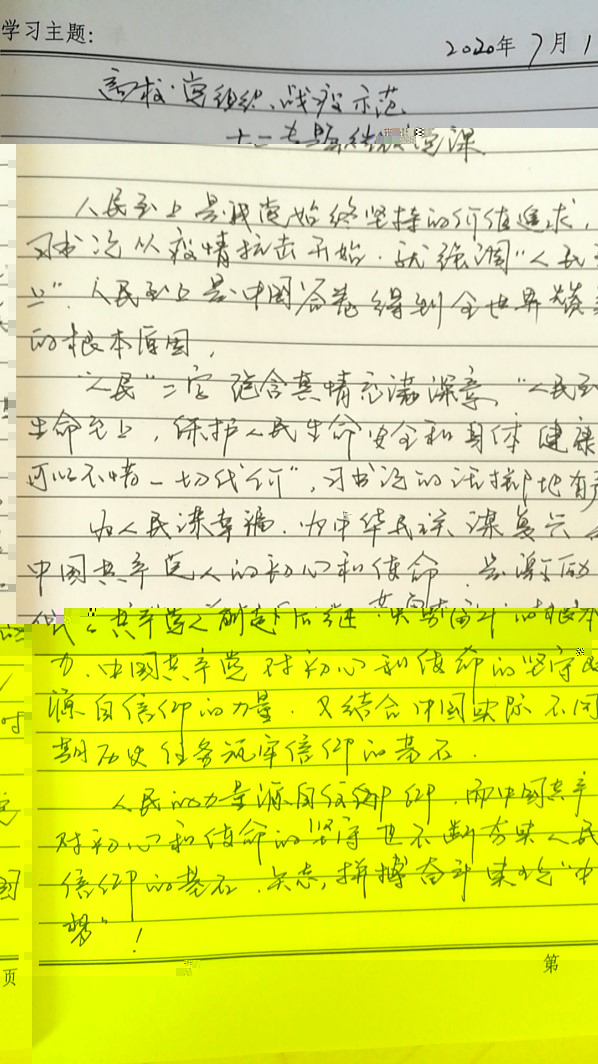 学习主题:
2020年7月1
高校党组织战疫示范
十二专题 党课
人民至上是我党始终坚持的价值追求,
习书记从疫情抗击开始.就强调"人民至
上".人民至上是中国 得到全世界
的根本原因,
"人民"二字饱含真情 深意,"人民至
生命至上,保护人民生命安全和身体健康
可以不惜一切代价",习书记的话掷地有
为人民谋幸福.为中华民族谋复兴
中国共产党人的初心和使命.是激励
代 共产党人前赴后继 奋斗的根本
力.中国共产党对初心和使命的坚守
源自信仰的力量.又结合中国实际不同
期历史任务筑牢信仰的基石.
人民的力量源自信仰.而中国共产
对初心和使命的坚守也不断夯实人民
信仰的基石.矢志,拼搏奋斗实现"中
梦"!
第
页
时
国